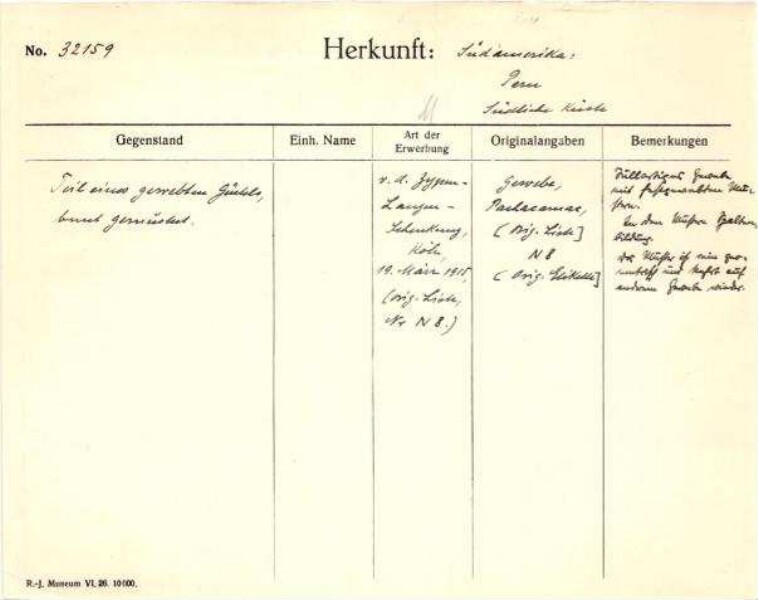 No. 32159
Herkunft: Südamerika:
Peru
Südliche Küste
Gegenstand
Einh. Name
Art der Erwerbung
Originalangaben
Bemerkungen
Teil eines gewebten Gürtels,
bunt gemustert.
v. d. Zypen-
Langen-
Schenkung,
Köln,
19. März 1915,
(orig. Liste,
Nr N 8.)
Gewebe,
Pachacamac,
(orig. Liste]
N 8
(orig. Etikette]
Tüllartiges Gewebe
mit
Mu-
stern.
In den Mustern
bildung.
Das Muster ist rein geo-
metrisch und kehrt auf
anderen Geweben wieder.
R.-J. Museum VI. 26. 10000.